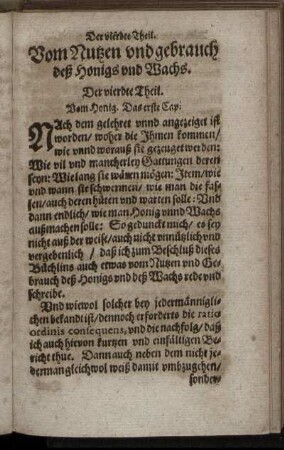 Der vierdte Theil.
Vom Nutzen vnd gebrauch
deß Honigs vnd Wachs.
Der vierdte Theil.
Vom Honig. Das erste Cap.
NAch dem gelehret vnnd angezeiget ist
worden/ woher die Ihmen kommen/
wie vnnd worauß sie gezeuget werden:
Wie vil vnd mancherley Gattungen deren
seyn: Wie lang sie wären mögen: Item/ wie
vnd wann sie schwermen/ wie man die fas-
sen/ auch deren hüten vnd warten solle: Vnd
dann endlich/ wie man Honig vnnd Wachs
außmachen solle: So gedunckt mich/ es sey
nicht auß der weise/ auch nicht vnnützlich vnd
vergebenlich/ daß ich zum Beschluß dieses
Büchlins auch etwas vom Nutzen vnd Ge-
brauch deß Honigs vnd deß Wachs rede vnd
schreibe.
Vnd wiewol solcher bey jedermännigli-
chen bekandt ist/ dennoch erforderts die ratio
ordinis consequens, vnd die nachfolg/ daß
ich auch hiervon kurtzen vnd einfältigen Be-
richt thue. Dann auch neben dem nicht je-
derman gleichwol weiß damit vmbzugehen/
sonder-